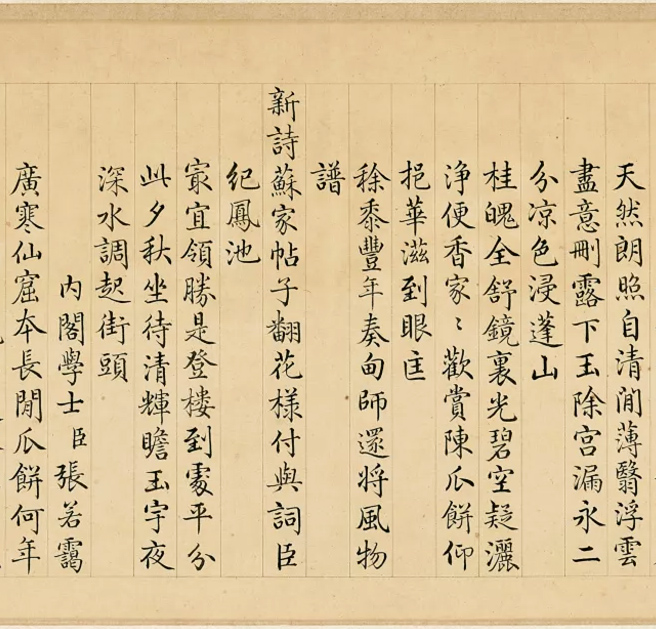 天然朗照自清閒薄翳浮雲
盡意刪露下玉除宮漏永二
分凉色浸蓬山
桂魄全舒鏡裏光碧空疑灑
淨便香家〻歡賞陳瓜餅仰
挹華滋到眼匡
稌黍豐年奏甸師還將風物
譜
新詩蘇家帖子翻花樣付與詞臣
紀鳳池
冣宜領勝是登樓到處平分
此夕秋坐待清輝瞻玉宇夜
深水調起街頭
內閣學士臣張若靄
廣寒仙窟本長閒瓜餅何年